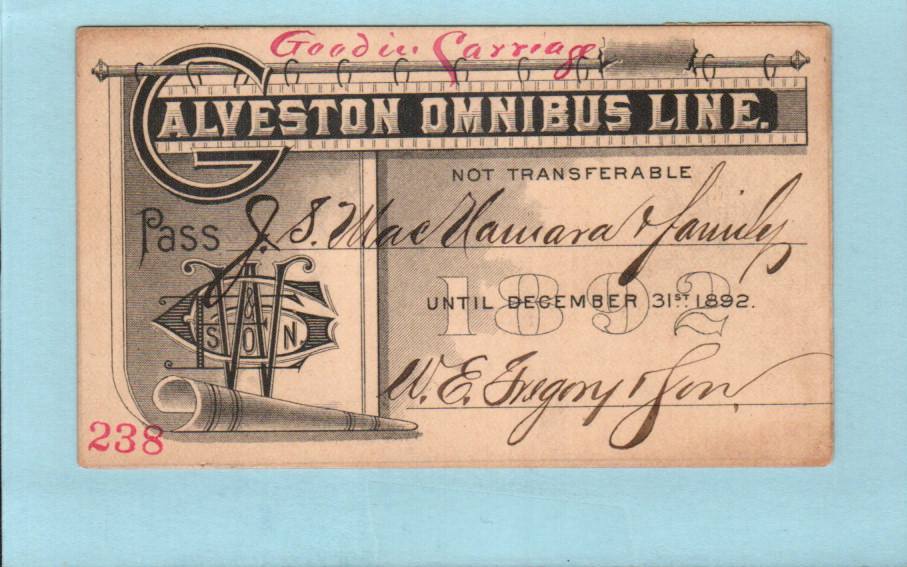 Good in Carriage
GALVESTON OMNIBUS LINE.
NOT TRANSFERABLE
Pass J. S. MacNamara & family
1892
UNTIL DECEMBER 31ST 1892.
W. E. Gregory & Son
& SON
238